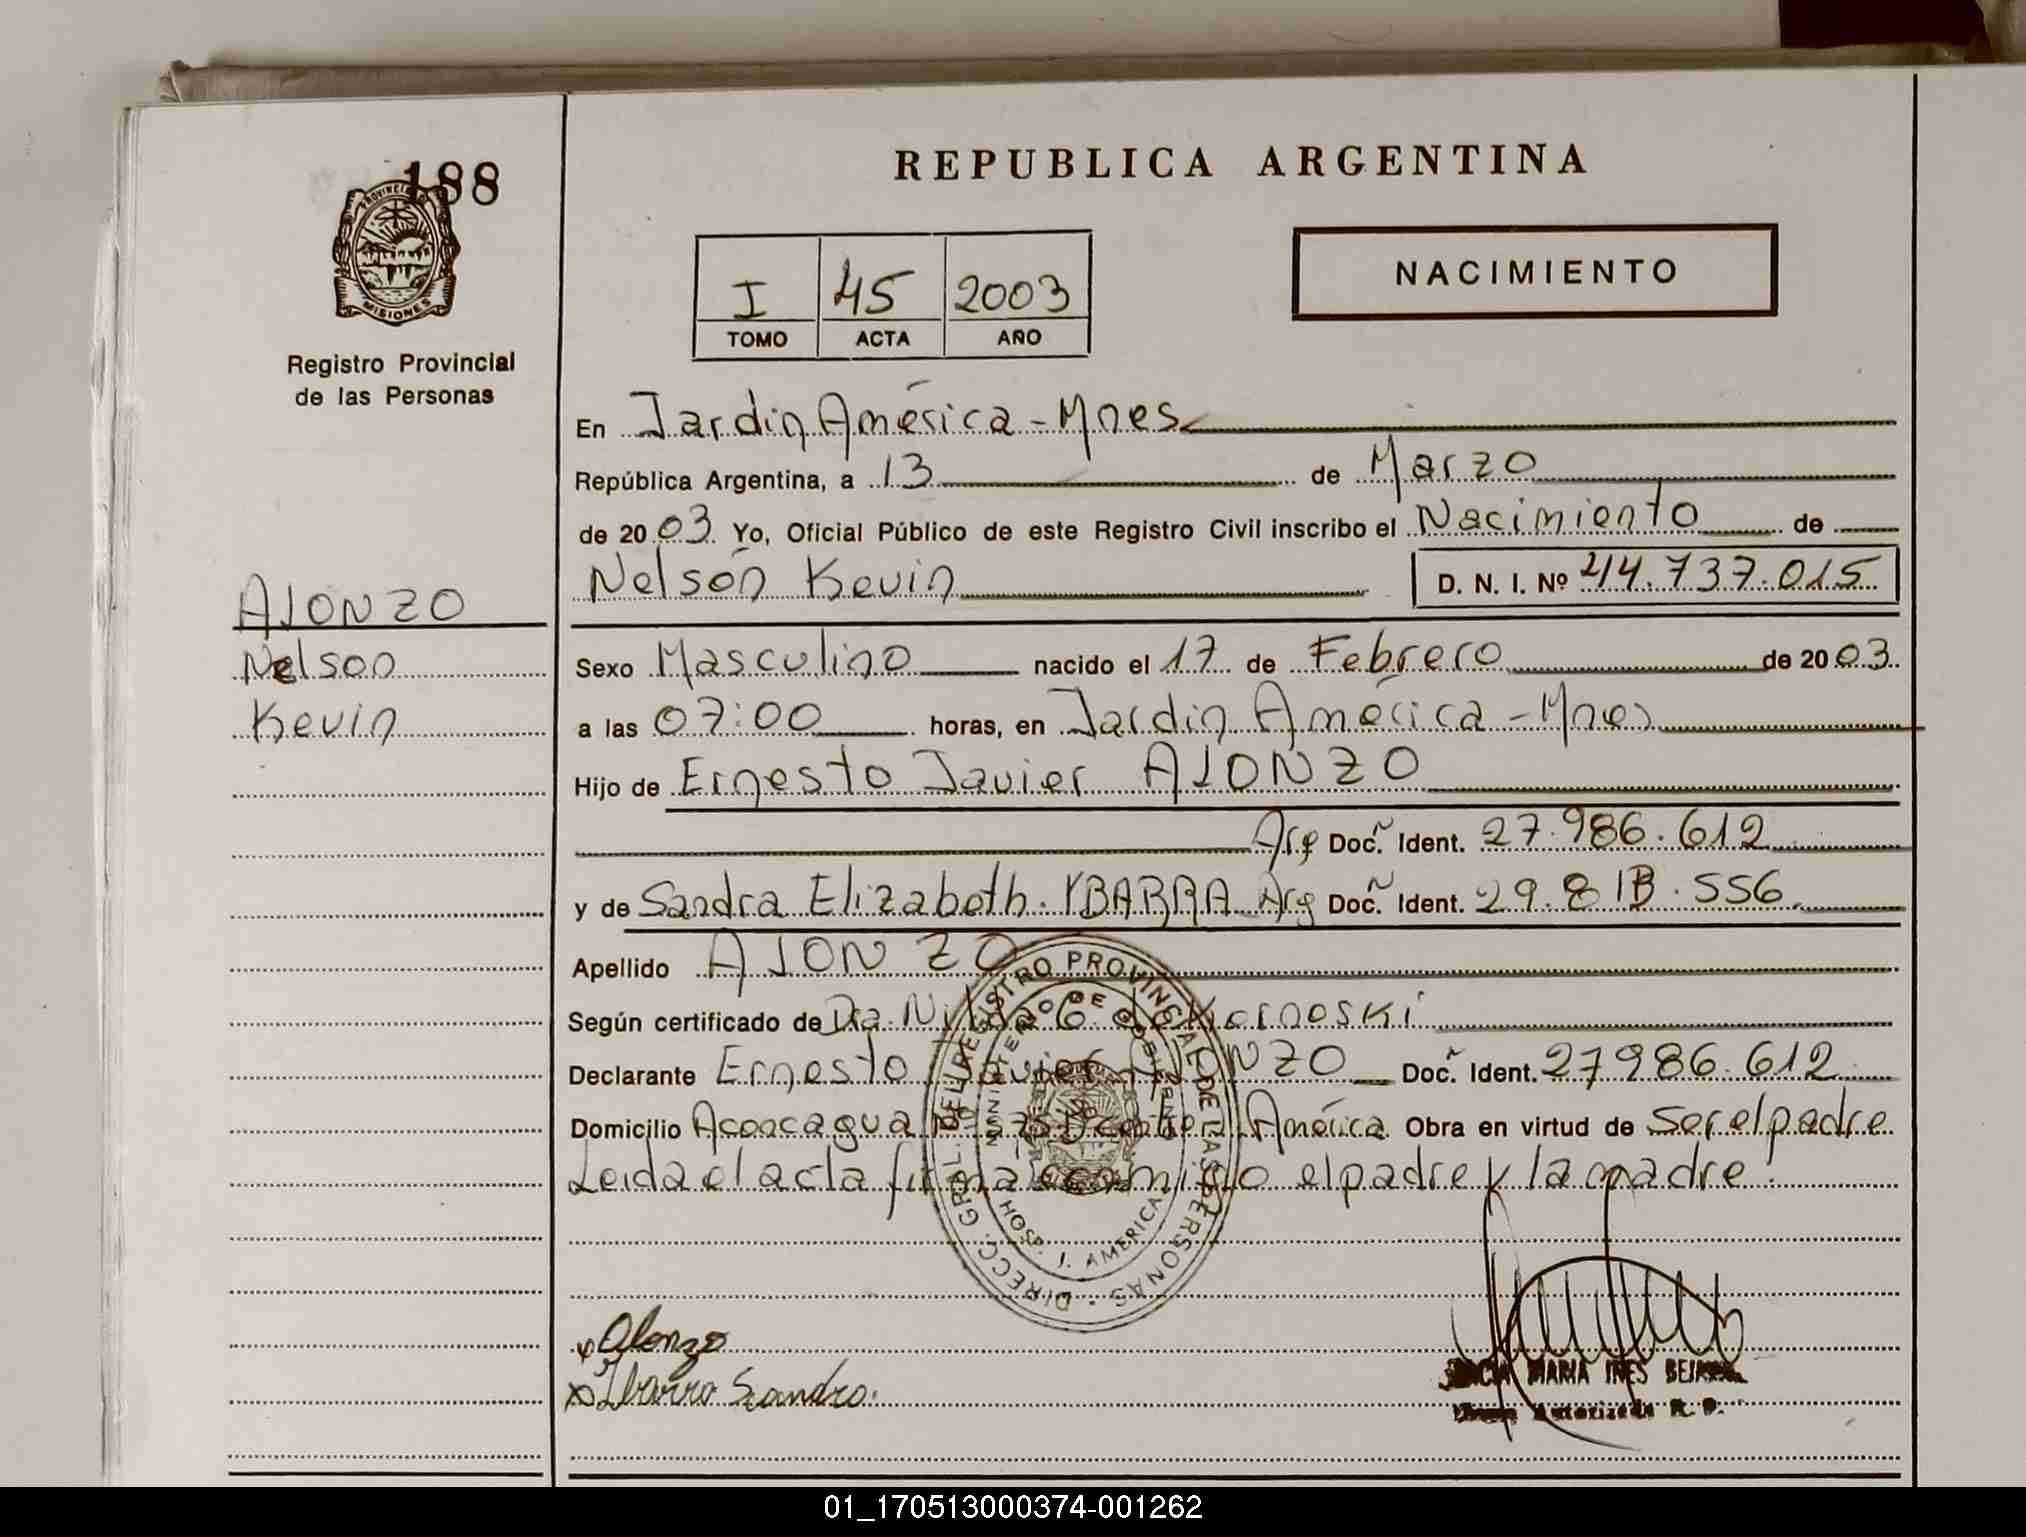 188
PROVINCIA DE
MISIONES
Registro Provincial
de las Personas
ALONZO
Nelson
Kevin
REPUBLICA ARGENTINA
NACIMIENTO
I 45 2003
TOMO ACTA AÑO
En Jardín América - Mnes
República Argentina, a 13 de Marzo
de 2003 Yo, Oficial Público de este Registro Civil inscribo el Nacimiento de
Nelsón Kevin D. N. I. Nº 44.737.015
Sexo Masculino nacido el 17 de Febrero de 2003
a las 07:00 horas, en Jardin América - Mnes
Hijo de Ernesto Javier ALONZO
Arg Doc. Ident. 27.986.612
y de Sandra Elizabeth YBARRA Arg Doc. Ident. 29.813.556
Apellido ALONZO
Según certificado de Dra. Nilda G. de
Declarante Ernesto Javier ALONZO Doc. Ident. 27986.612
Domicilio Aconcagua América Obra en virtud de Ser el padre
Leida el acta firma conmigo el padre y la madre.
DIRECC. GRAL. DEL REGISTRO PROVINCIAL DE LAS PERSONAS
MINISTERIO DE GOBIERNO
HOSP. J. AMERICA
x Alonzo
x Ibarra Sandra.
MARIA INES
Autorizada R. P.
01_170513000374-001262